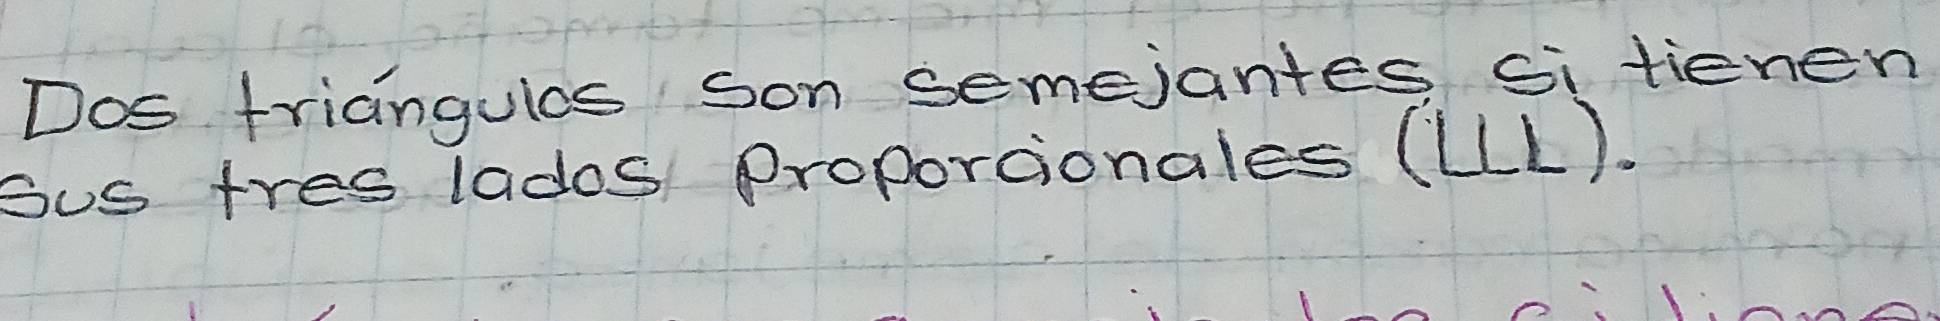 Dos triángulos son semejantes si tienen
sus tres lados proporcionales (LLL).